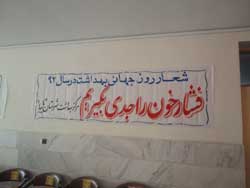 شعار روز جهانی بهداشت در سال ۹۲
فشار خون را جدی بگیریم
مرکز بهداشت شهرستان